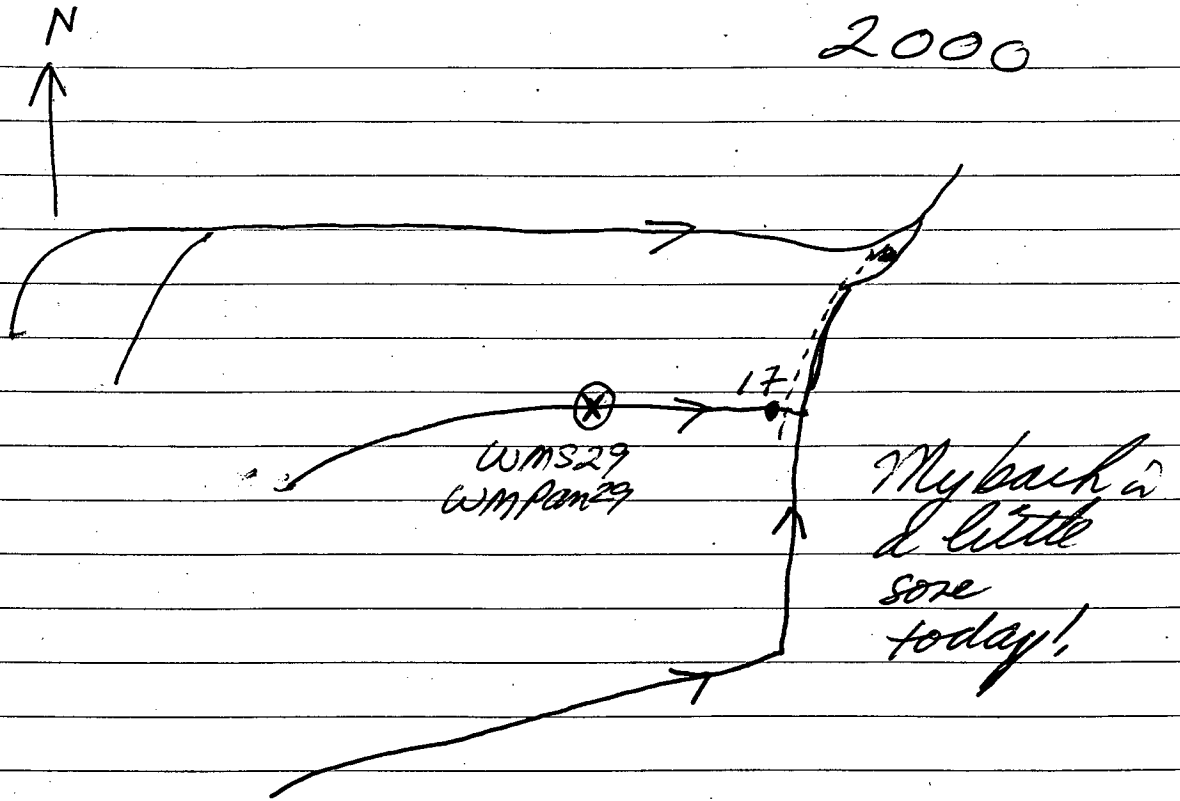 N
2000
17
WMS29
WMPan29
My back is
a little
sore
today!